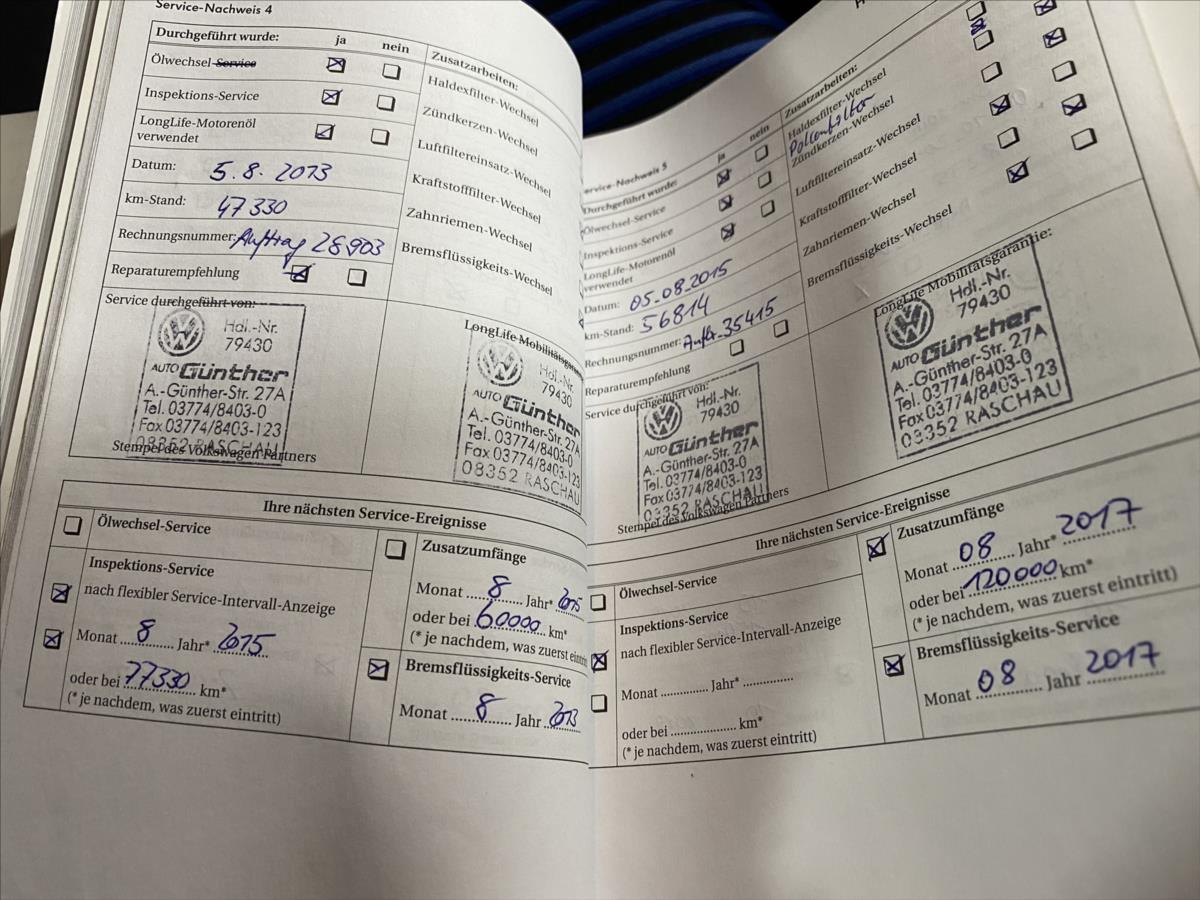 Service-Nachweis 4
Durchgeführt wurde: ja nein
Ölwechsel-Service
Inspektions-Service
LongLife-Motorenöl
verwendet
Datum: 5.8.2013
km-Stand: 47330
Rechnungsnummer: Auftrag 28903
Reparaturempfehlung
Service durchgeführt von:
Hdl.-Nr.
79430
AUTO Günther
A.-Günther-Str. 27A
Tel. 03774/8403-0
Fax 03774/8403-123
08352 RASCHAU
Stempel des Volkswagen Partners
Zusatzarbeiten:
Haldexfilter-Wechsel
Zündkerzen-Wechsel
Luftfiltereinsatz-Wechsel
Kraftstofffilter-Wechsel
Zahnriemen-Wechsel
Bremsflüssigkeits-Wechsel
LongLife Mobilitätsgara
Hdl.-Nr.
79430
AUTO Günther
A.-Günther-Str. 27A
Tel. 03774/8403-0
Fax 03774/8403-123
08352 RASCHAU
Ihre nächsten Service-Ereignisse
Ölwechsel-Service
Inspektions-Service
nach flexibler Service-Intervall-Anzeige
Monat 8 Jahr* 2015
oder bei 77330 km*
(* je nachdem, was zuerst eintritt)
Zusatzumfänge
Monat 8 Jahr* 2015
oder bei 60000 km*
(* je nachdem, was zuerst eintri
Bremsflüssigkeits-Service
Monat 8 Jahr 2013
ervice-Nachweis 5
Durchgeführt wurde: ja nein
Ölwechsel-Service
Inspektions-Service
LongLife-Motorenöl
verwendet
Datum: 05.08.2015
km-Stand: 56814
Rechnungsnummer: Auftr. 35415
Reparaturempfehlung
Service durchgeführt von:
Hdl.-Nr.
79430
AUTO Günther
A.-Günther-Str. 27A
Tel. 03774/8403-0
Fax 03774/8403-123
08352 RASCHAU
Stempel des Volkswagen Partners
Zusatzarbeiten:
Haldexfilter-Wechsel
Pollenfilter
Zündkerzen-Wechsel
Luftfiltereinsatz-Wechsel
Kraftstofffilter-Wechsel
Zahnriemen-Wechsel
Bremsflüssigkeits-Wechsel
LongLife Mobilitätsgarantie:
Hdl.-Nr.
79430
AUTO Günther
A.-Günther-Str. 27A
Tel. 03774/8403-0
Fax 03774/8403-123
08352 RASCHAU
Ihre nächsten Service-Ereignisse
Ölwechsel-Service
Inspektions-Service
nach flexibler Service-Intervall-Anzeige
Monat Jahr*
oder bei km*
(* je nachdem, was zuerst eintritt)
Zusatzumfänge
Monat 08 Jahr* 2017
oder bei 120000 km*
(* je nachdem, was zuerst eintritt)
Bremsflüssigkeits-Service
Monat 08 Jahr 2017